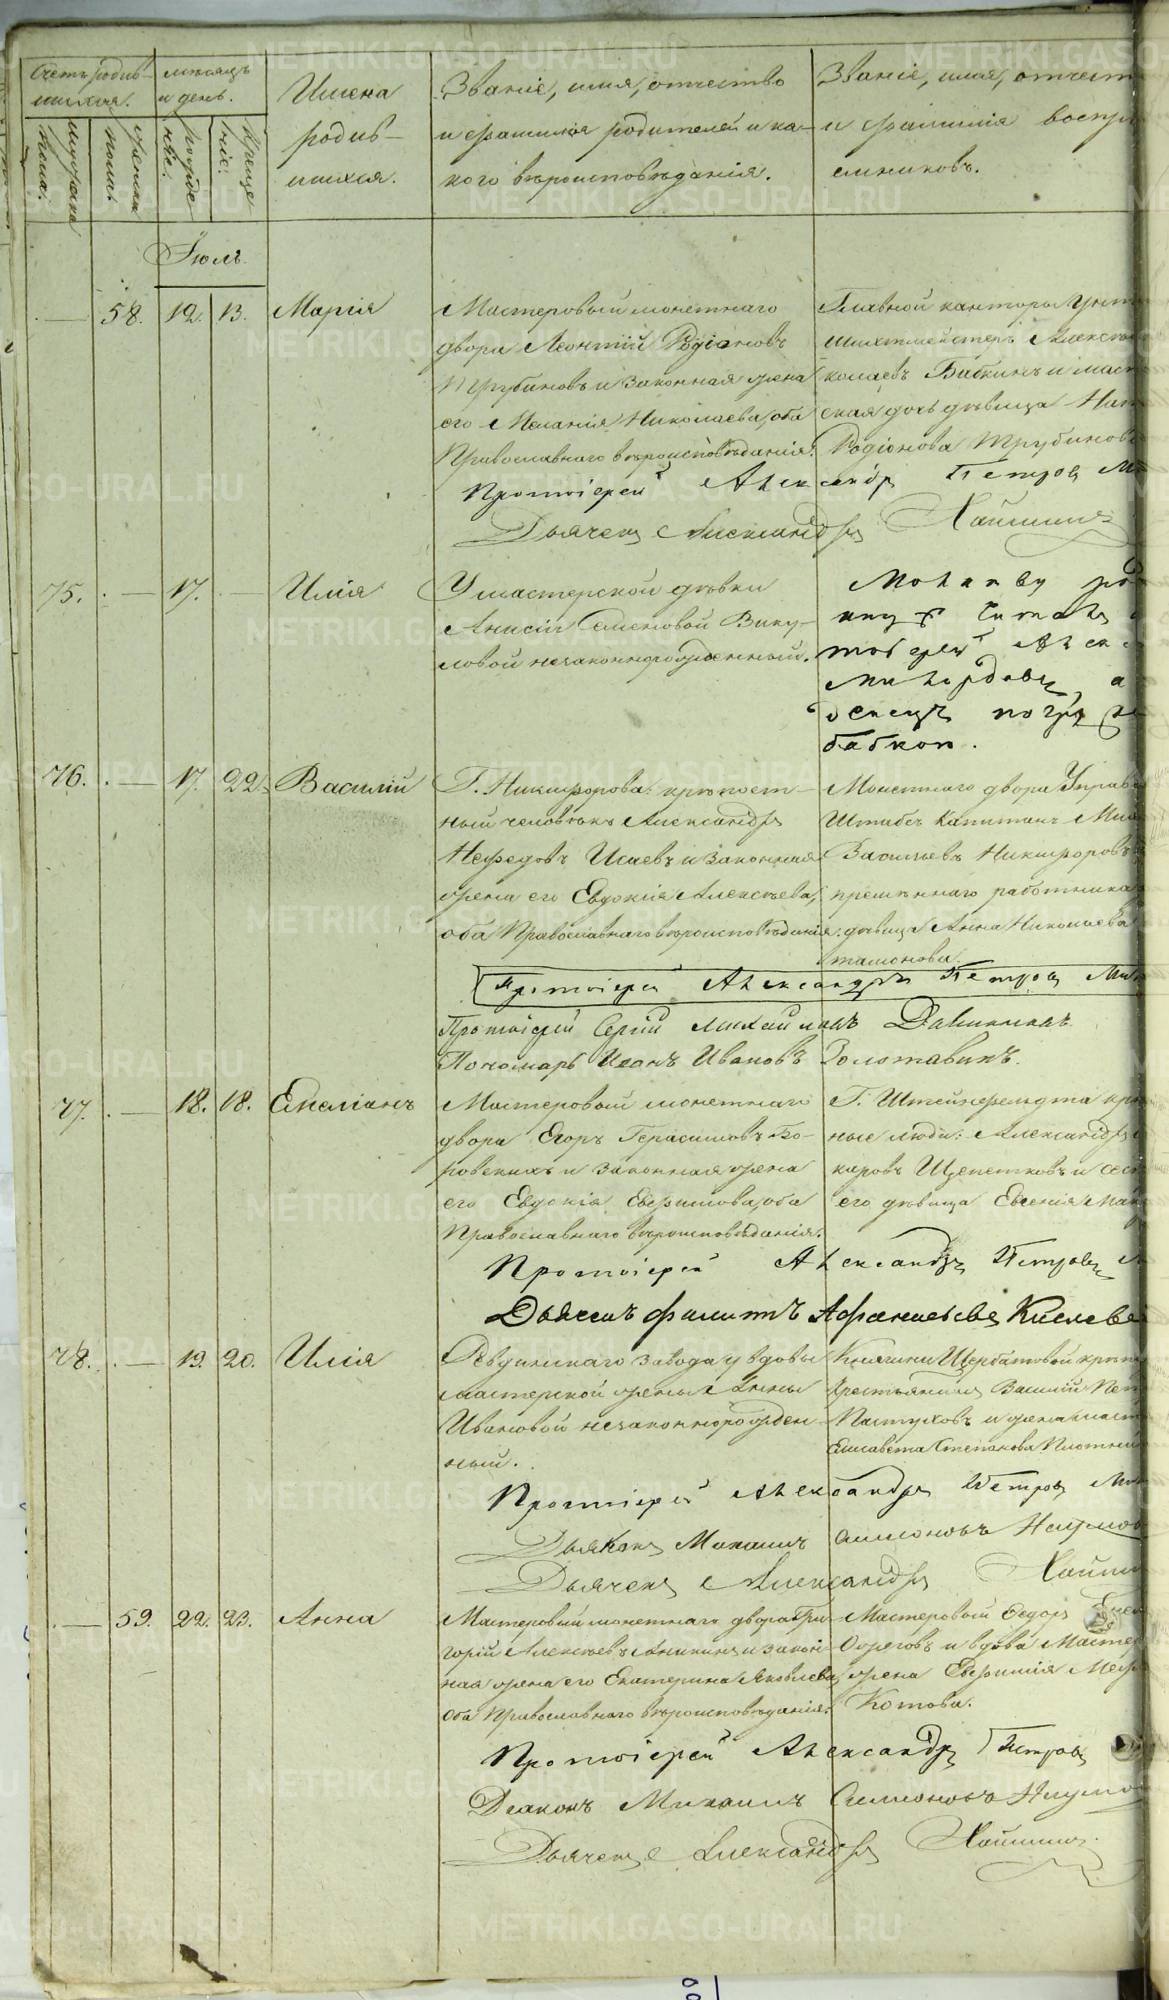 Счетъ родив-
шихся.
мѣсяцъ
и день.
Имена
родив-
шихся.
Званіе, имя, отчество
и фамилія родителей и ка-
кого вѣроисповѣданія.
Званіе, имя, отчест
и фамилія воспр
емниковъ.
мужеска
пола.
женска
пола
рожде
ніе.
креще
ніе.
Іюль.
58. 12. 13. Марія
Мастеровый монетнаго
двора Леонтій Родіоновъ
Трубиновъ и законная жена
его Меланія Николаева, оба
Православнаго вѣроисповѣданія.
Главной канторы Унт
шихтмейстеръ Алексѣ
колаевъ Бабкинъ и маст
ская дочь дѣвица Нат
Родіонова Трубинов
Протоіерей Александръ Петровъ Ми
Дьячекъ Александръ Хайминъ
75. 17. Илія
У мастерской дѣвки
Анисіи Семеновой Вику-
ловой незаконнорожденный.
Молитву ро
ницѣ читалъ
тоіерей Алек
Миролюбовъ, а
денецъ погру
бабкою.
76. 17. 22. Василій
Г. Никифорова: крѣпост-
ный человѣкъ Александръ
Нефедовъ Исаевъ и законная
жена его Евдокія Алексѣева,
оба Православнаго вѣроисповѣданія.
Монетнаго двора Управ
Штабсъ Капитанъ Ми
Васильевъ Никифоровъ
дѣвица Анна Николаева
Протоіерей Александръ Петровъ Ми
Протоіерей Сергій Михайловъ
Пономарь Иванъ Ивановъ Золотавинъ.
77. 18. 18. Емеліанъ
Мастеровый монетнаго
двора Егоръ Герасимовъ Бо-
ровскихъ и законная жена
его Евдокія Евфимова, оба
Православнаго вѣроисповѣданія.
Г. Штейнфельдта крѣ
ные люди: Александръ
каровъ Щепетковъ и сес
его дѣвица Евгенія Мак
Протоіерей Александръ Петровъ
Дьячекъ Филиппъ Афанасьевъ Киселев
78. 19. 20. Илія
Ревдинскаго завода у вдовы
мастерской жены Анны
Ивановой незаконнорожден-
ный.
Княгини Щербатовой крѣп
Крестьянинъ Василій Пет
Пастуховъ и жена маст
Елисавета Степанова Плотни
Протоіерей Александръ Петровъ Ми
Дьяконъ Михаилъ Симоновъ Наумов
Дьячекъ Александръ Хайми
59. 22. 23. Анна
Мастеровый монетнаго двора Гри-
горій Алексѣевъ Аникинъ и закон-
ная жена его Екатерина Яковлева,
оба Православнаго вѣроисповѣданія.
Мастеровый Ѳедоръ
и вдова Мастер
жена Евфимія Меф
Котова.
Протоіерей Александръ Петровъ
Діаконъ Михаилъ Симоновъ Наумо
Дьячекъ Александръ Хайминъ.
METRIKI.GASO-URAL.RU